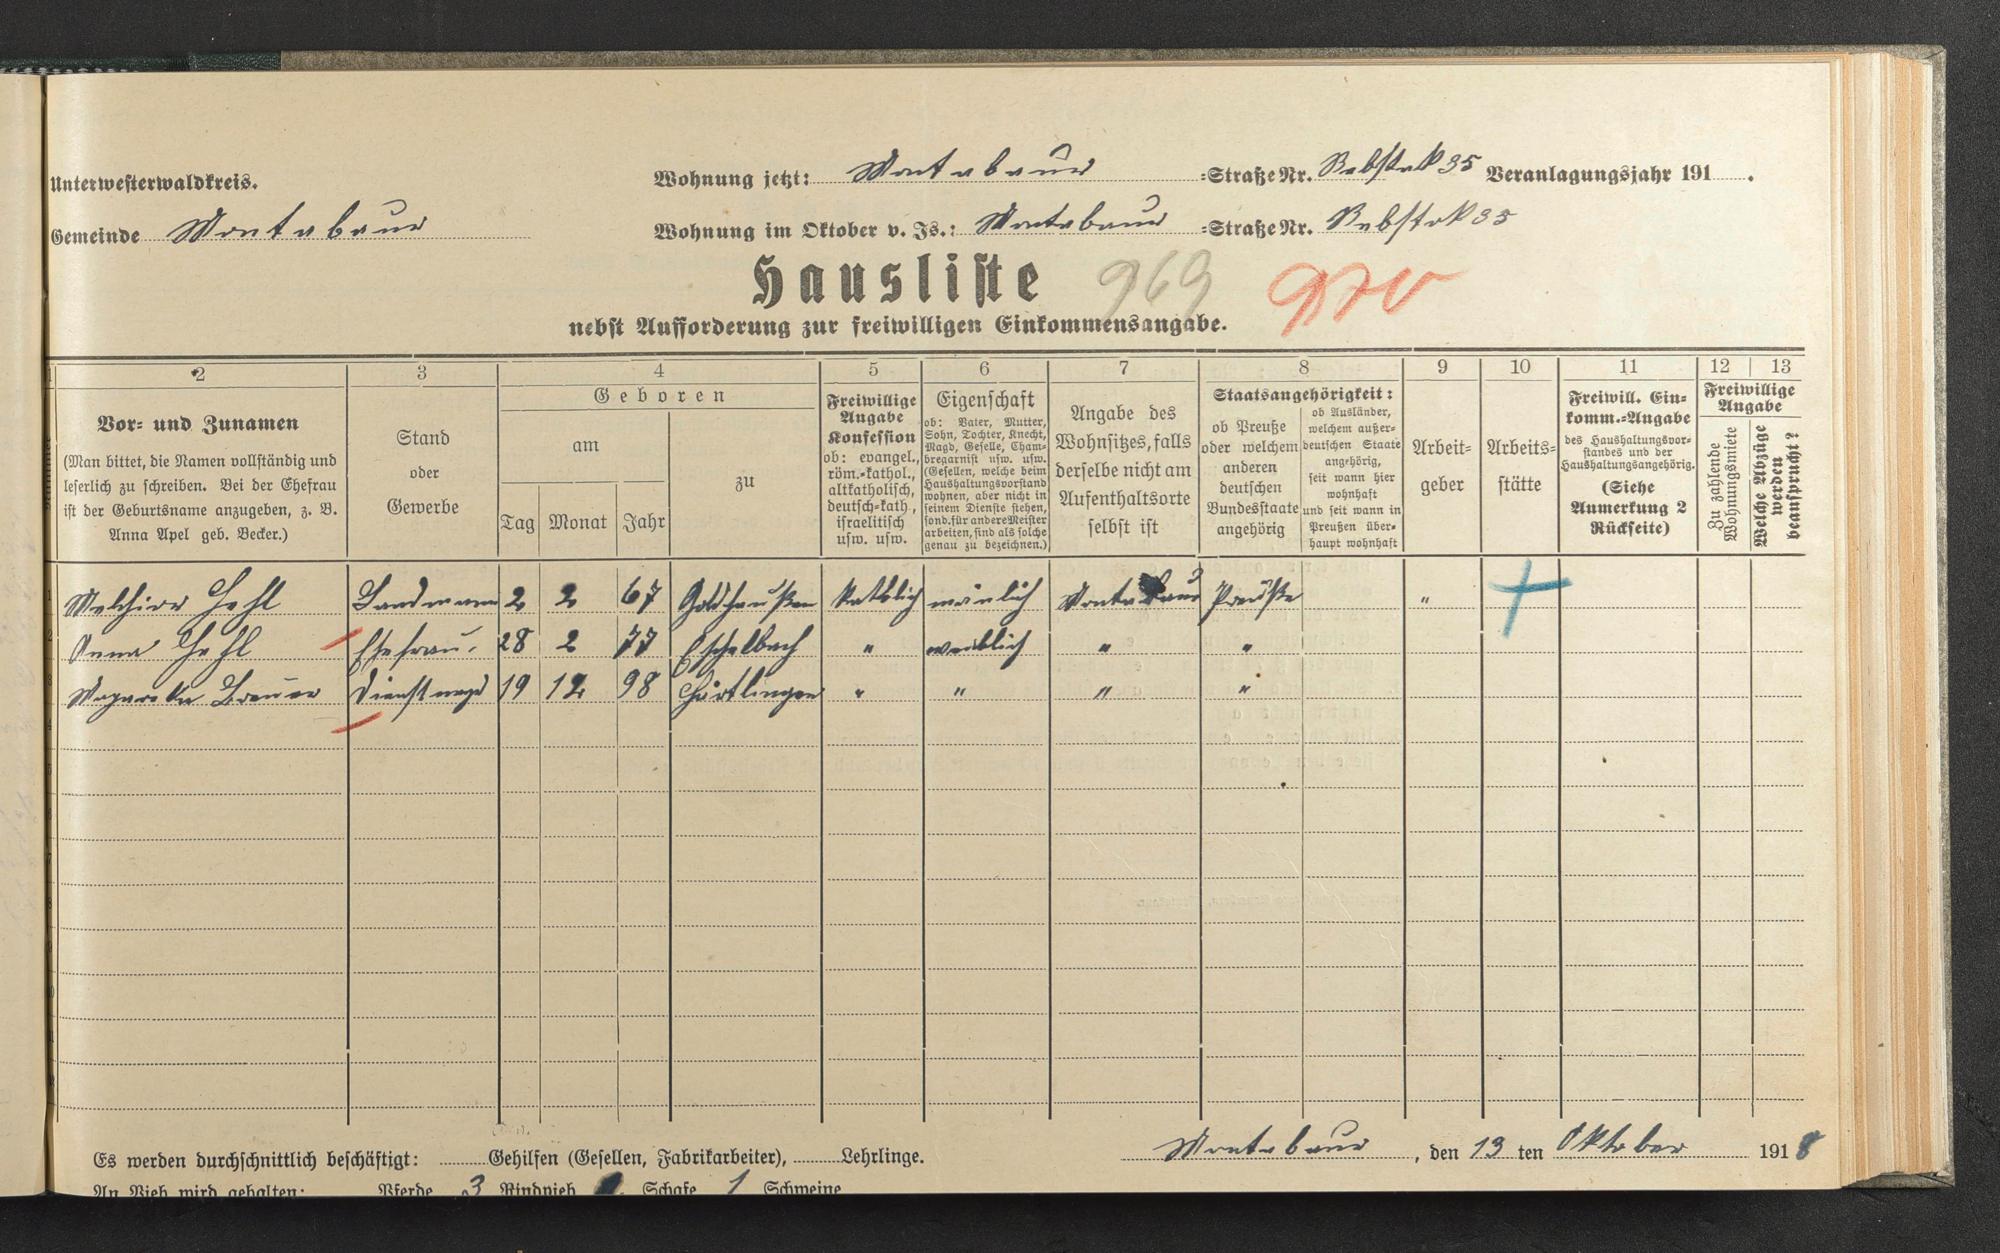 Unterwesterwaldkreis.
Wohnung jetzt: Montabaur =Straße Nr. Rebstok 35 Veranlagungsjahr 191 .
Gemeinde Montabaur
Wohnung im Oktober v. Js.: Montabaur =Straße Nr. Rebstok 35
Hausliste 969 970
nebst Aufforderung zur freiwilligen Einkommensangabe.
2 3 4 5 6 7 8 9 10 11 12 13
Vor= und Zunamen
(Man bittet, die Namen vollständig und
leserlich zu schreiben. Bei der Ehefrau
ist der Geburtsname anzugeben, z. B.
Anna Apel geb. Becker.)
Stand
oder
Gewerbe
Geboren
am
Tag Monat Jahr
zu
Freiwillige
Angabe
Konfession
ob: evangel.,
röm.=kathol.,
altkatholisch,
deutsch=kath.,
israelitisch
usw. usw.
Eigenschaft
ob: Vater, Mutter,
Sohn, Tochter, Knecht,
Magd, Geselle, Cham=
bregarnist usw. usw.
(Gesellen, welche beim
Haushaltungsvorstand
wohnen, aber nicht in
seinem Dienste stehen,
sond. für andere Meister
arbeiten, sind als solche
genau zu bezeichnen.)
Angabe des
Wohnsitzes, falls
derselbe nicht am
Aufenthaltsorte
selbst ist
Staatsangehörigkeit:
ob Preuße
oder welchem
anderen
deutschen
Bundesstaate
angehörig
ob Ausländer,
welchem außer=
deutschen Staate
angehörig,
seit wann hier
wohnhaft
und seit wann in
Preußen über=
haupt wohnhaft
Arbeit=
geber
Arbeits=
stätte
Freiwill. Ein=
komm.=Angabe
des Haushaltungsvor=
standes und der
Haushaltungsangehörig.
(Siehe
Anmerkung 2
Rückseite)
Freiwillige
Angabe
Zu zahlende
Wohnungsmiete
Welche Abzüge
werden
beansprucht?
1 Melchior Hehl Landmann 2 2 67 Goldhausen Katholich mänlich Montabaur Preuße "
2 Anna Hehl Ehefrau. 28 2 77 Eschelbach " weiblich " "
3 Magareta Breuer Dienstmagd 19 12 98 Härtlingen " " " "
Montabaur, den 13 ten Oktober 1918
Es werden durchschnittlich beschäftigt: Gehilfen (Gesellen, Fabrikarbeiter), Lehrlinge.
An Vieh wird gehalten: Pferde 3 Rindvieh Schafe 1 Schweine